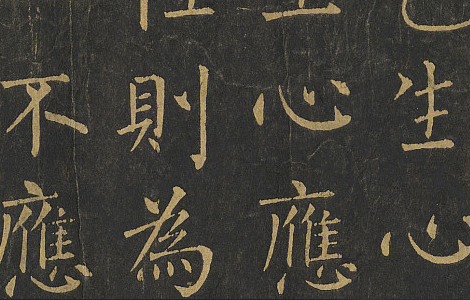 生心
心應
則為
不應